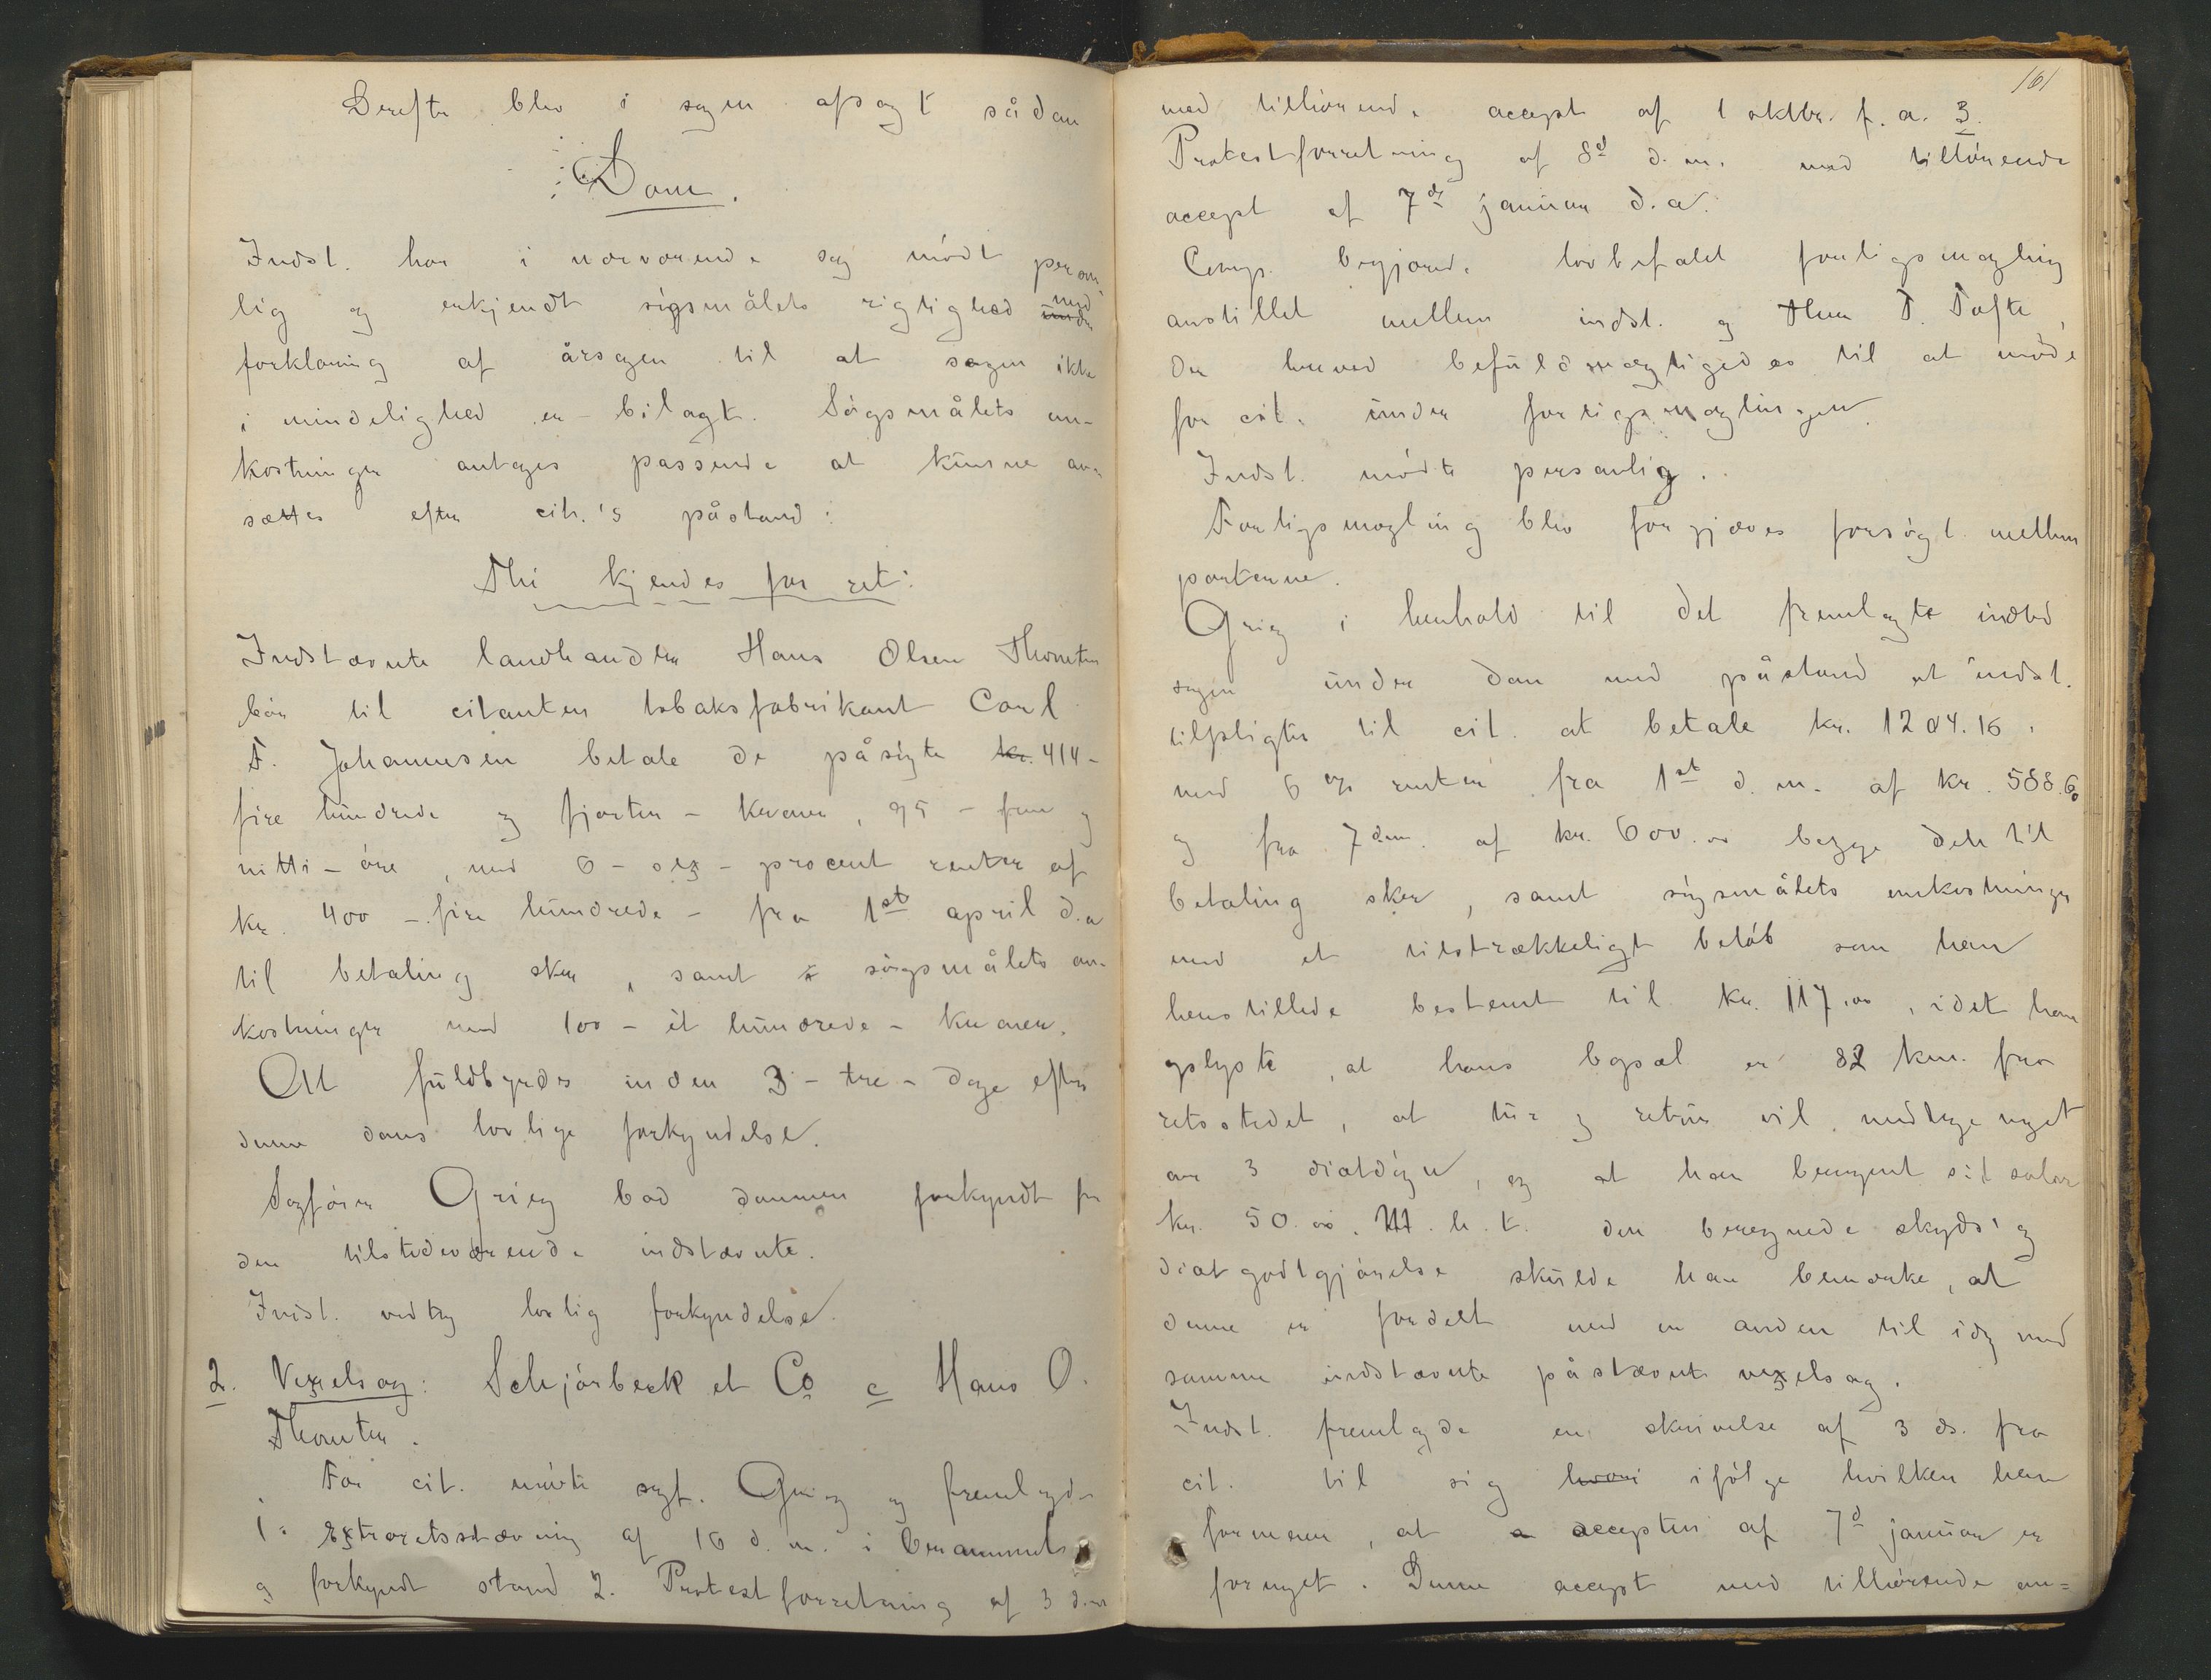 Derefter blev i sagen afsagt sådan
Dom.
Indst. har i nærværende sag mödt person-
lig og erkjendt sögsmålets rigtighed med
forklaring af årsagen til at sagen ikke
i mindelighed er bilagt. Sögsmålets om-
kostninger antages passende at kunne an-
sættes efter cit.'s påstand:
Thi kjendes for ret:
Indstævnte landhandler Hans Olsen Thomter
bör til citanten tobaksfabrikant Carl
F. Johannesen betale de påsögte kr. 414 -
fire hundrede og fjorten - kroner, 95 - fem og
nitti - öre, med 6 - sex - procent renter af
kr. 400 - fire hundrede - fra 1st april d.a
til betaling sker, samt sögsmålets om-
kostninger med 100 - ét hundrede - kroner.
Alt fuldbyrdes inden 3 - tre - dage efter
denne doms lovlige forkyndelse.
Sagförer Grieg bad dommen forkyndt for
den tilstedeværende indstævnte.
Indst. vedtog lovlig forkyndelse.
2. Vexelsag: Schjörbeck et Co c Hans O.
Thomter.
For cit. mödte sagf. Grieg og fremlagde
1. Extraretsstævning af 16 d.m. i berammet
og forkyndt stand 2. Protestforretning af 3 d.m
161
med tilhörende accept af 1 oktbr. f.a. 3.
Protestforretning af 8d d.m. med tilhörende
accept af 7de januar d.a.
Comp. begjærede lovbefalet forligsmægling
anstillet mellem indst. og Herr T. Tofte,
der herved befuldmægtigedes til at möde
for cit. under forligsmæglingen.
Indst. mödte personlig.
Forligsmægling blev forgjæves forsögt mellem
parterne.
Grieg i henhold til det fremlagte indlod
sagen under dom med påstand at indst.
tilpligtes til cit. at betale kr. 1204.16.
med 6 % renter fra 1st d.m. af kr. 588.60
og fra 7 d.m. af kr. 600.00 begge dele til
betaling sker, samt sögsmålets omkostninger
med et tilstrækkeligt belöb som han
henstillede bestemt til kr. 117.00, idet han
oplyste, at hans bopæl er 82 km. fra
retsstedet, at tur og retur vil medtage noget
over 3 diætdögn, og at han beregnet sit salær
kr. 50.00. M.h.t. den beregnede skyds og
diætgodtgjörelse skulde han bemærke, at
denne er fordelt med en anden til idag mod
samme indstævnte påstævnte vexelsag.
Indst. fremlagde en skrivelse af 3 ds. fra
cit. til sig hvori ifölge hvilken han
formener, at accepten af 7d januar er
fornyet. Denne accept med tilhörende an=